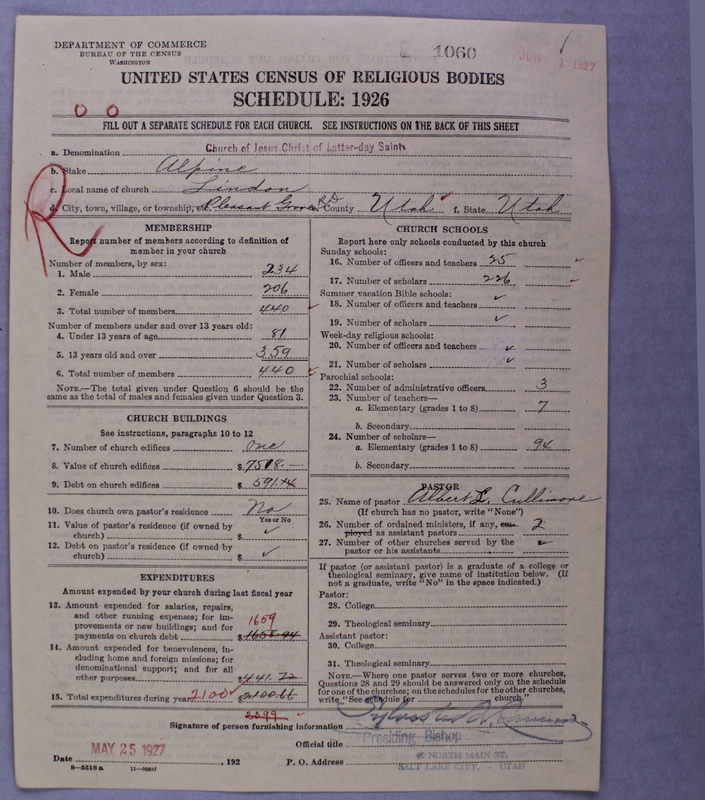 DEPARTMENT OF COMMERCE
BUREAU OF THE CENSUS
WASHINGTON
1060
JUN 1 1927
UNITED STATES CENSUS OF RELIGIOUS BODIES
SCHEDULE: 1926
0 0
FILL OUT A SEPARATE SCHEDULE FOR EACH CHURCH. SEE INSTRUCTIONS ON THE BACK OF THIS SHEET
a. Denomination Church of Jesus Christ of Latter-day Saints
b. Stake Alpine
c. Local name of church Lindon
d. City, town, village, or township, etc. Pleasant Grove RD County Utah f. State Utah
R
MEMBERSHIP
Report number of members according to definition of member in your church
Number of members, by sex:
1. Male 234
2. Female 206
3. Total number of members 440
Number of members under and over 13 years old:
4. Under 13 years of age 81
5. 13 years old and over 359
6. Total number of members 440
NOTE.—The total given under Question 6 should be
same as the total of males and females given under Question 3.
CHURCH BUILDINGS
See instructions, paragraphs 10 to 12
7. Number of church edifices one
8. Value of church edifices $7518.—
9. Debt on church edifices $591.44
10. Does church own pastor's residence No
Yes or No
11. Value of pastor's residence (if owned by
church) $ ✓
12. Debt on pastor's residence (if owned by
church) $ ✓
EXPENDITURES
Amount expended by your church during last fiscal year
13. Amount expended for salaries, repairs,
and other running expenses; for im-
provements or new buildings; and for 1659
payments on church debt $1658.94
14. Amount expended for benevolences, in-
cluding home and foreign missions; for
denominational support; and for all
other purposes $441.72
15. Total expenditures during year 2100 $2100.66
2099
CHURCH SCHOOLS
Report here only schools conducted by this church
Sunday schools:
16. Number of officers and teachers 25
17. Number of scholars 226
Summer vacation Bible schools:
18. Number of officers and teachers ✓
19. Number of scholars ✓
Week-day religious schools:
20. Number of officers and teachers ✓
21. Number of scholars ✓
Parochial schools:
22. Number of administrative officers 3
23. Number of teachers—
a. Elementary (grades 1 to 8) 7
b. Secondary
24. Number of scholars—
a. Elementary (grades 1 to 8) 94
b. Secondary
PASTOR
25. Name of pastor Albert L. Cullimore
(If church has no pastor, write "None")
26. Number of ordained ministers, if any, em-
ployed as assistant pastors 2
27. Number of other churches served by the
pastor or his assistants
If pastor (or assistant pastor) is a graduate of a college or
theological seminary, give name of institution below. (If
not a graduate, write "No" in the space indicated.)
Pastor:
28. College
29. Theological seminary
Assistant pastor:
30. College
31. Theological seminary
NOTE.—Where one pastor serves two or more churches,
Questions 28 and 29 should be answered only on the schedule
for one of the churches; on the schedules for the other churches,
write "See schedule for church."
Signature of person furnishing information
Official title Presiding Bishop
Date MAY 25 1927, 192 P. O. Address 40 NORTH MAIN ST.
SALT LAKE CITY, - UTAH
8—5518a